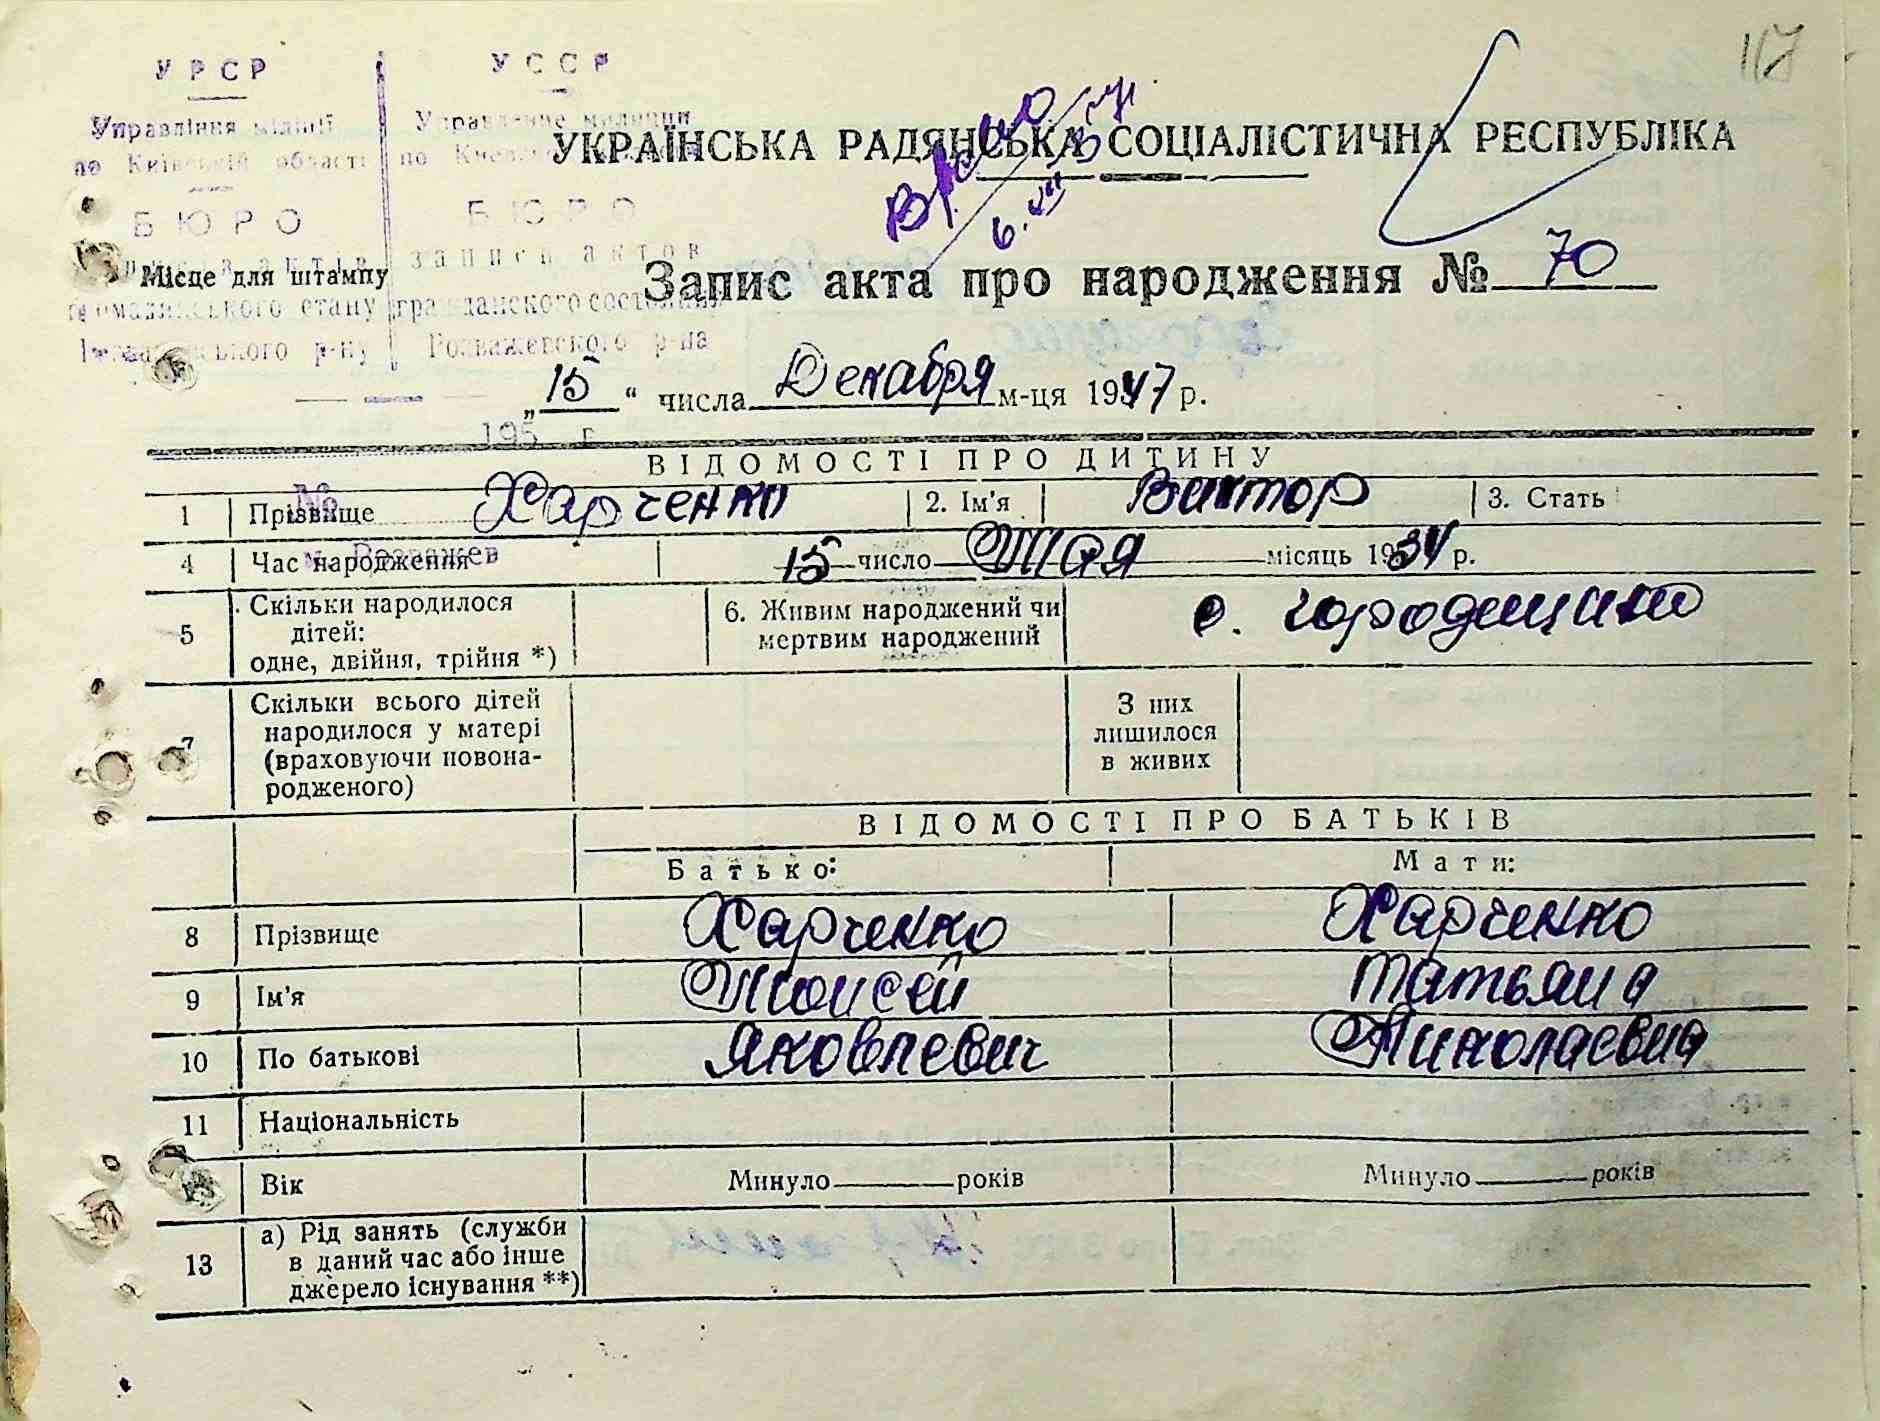 117
УРСР
УССР
Управління міліції
по Київській області
Управление милиции
по
УКРАЇНСЬКА РАДЯНСЬКА СОЦІАЛІСТИЧНА РЕСПУБЛІКА
6.VIII
БЮРО
БЮРО
записи актов
Місце для штампу
громадянського стану
гражданского состояния
р-ну
Розважевского р-на
Запис акта про народження № 70
„15“ числа Декабря м-ця 1947 р.
195 г.
ВІДОМОСТІ ПРО ДИТИНУ
№
1 Прізвище Харченко 2. Ім'я Виктор 3. Стать
Розважев
4 Час народження 15 число Мая місяць 1934 р.
5 Скільки народилося
дітей:
одне, двійня, трійня *)
6. Живим народжений чи
мертвим народжений
с. Городещино
7 Скільки всього дітей
народилося у матері
(враховуючи новона-
родженого)
З них
лишилося
в живих
ВІДОМОСТІ ПРО БАТЬКІВ
Батько: Мати:
8 Прізвище Харченко Харченко
9 Ім'я Моисей Татьяна
10 По батькові Яковлевич Николаевна
11 Національність
Вік Минуло років Минуло років
13 а) Рід занять (служби
в даний час або інше
джерело існування **)